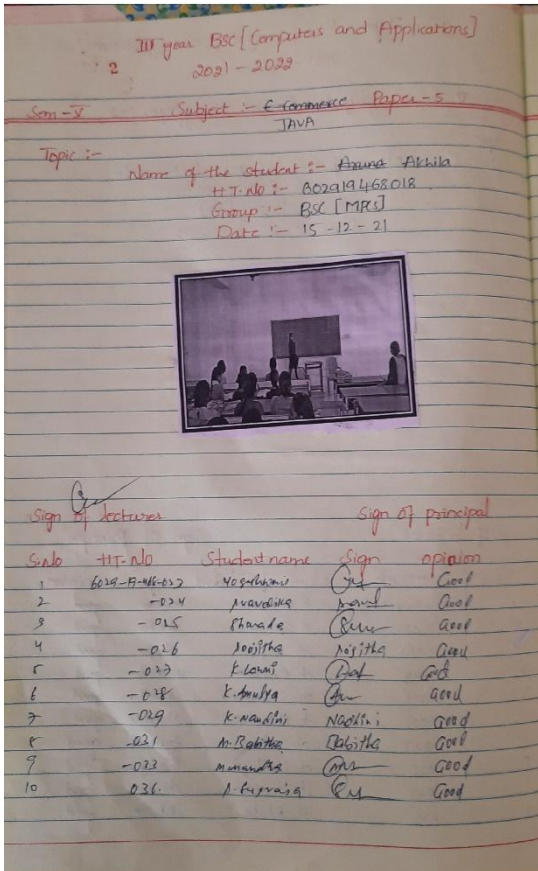 III year BSC [Computers and Applications]
2
2021-2022
Sem-V Subject :- E commerce Paper-5
JAVA
Topic :-
Name of the student :- Aruna Akhila
HT.No :- 602919468018
Group :- BSC [MPCs]
Date :- 15-12-21
Sign of lectures Sign of principal
S.No HT-No Student name Sign opinion
1 6029-19-468-023 Good
2 -024 Good
3 -025 Sharada Good
4 -026 Good
5 -027 K. Laxmi Good
6 -028 K. Amulya Good
7 -029 K. Nandini Nadhini Good
8 -031 M. Babitha Babitha Good
9 -033 Good
10 036. Good